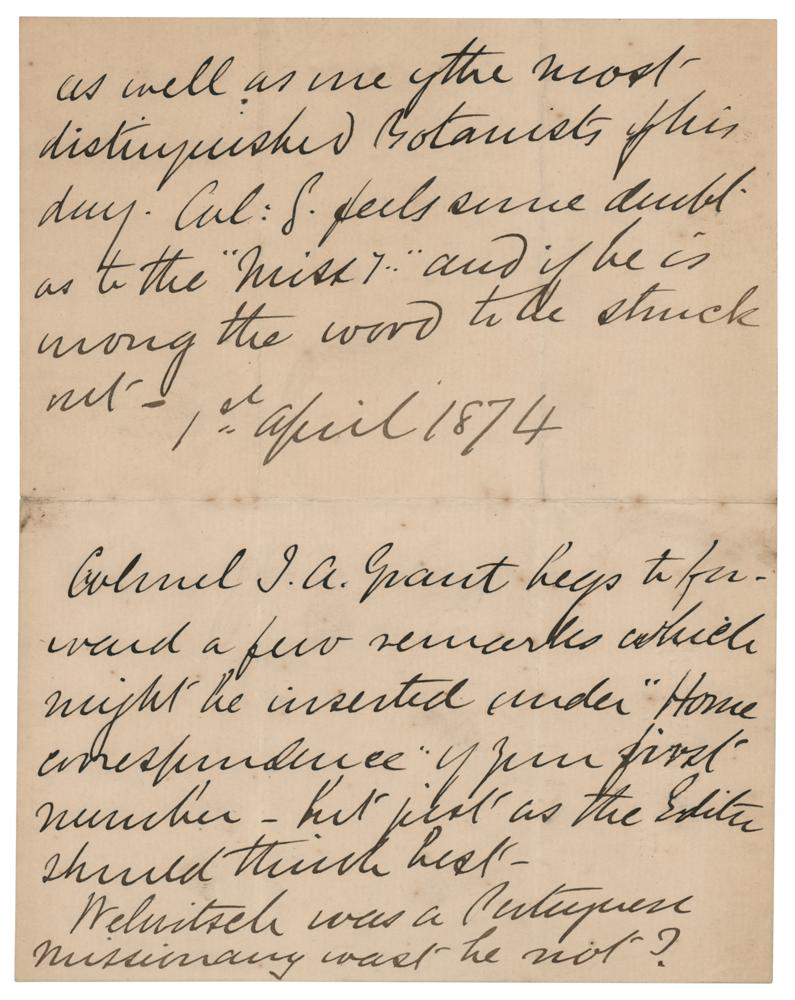 as well as one of the most
distinguished Botanists of his
day. Col: G. feels some doubt
as to the "Missy.." and if he is
wrong the word to be struck
out -
1st April 1874
Colonel J. A. Grant begs to for-
ward a few remarks which
might be inserted under "Home
correspondence" of your first
number - but just as the Editor
should think best -
Welwitsch was a Portuguese
missionary wast he not?